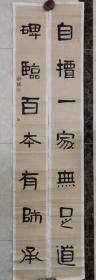 自擅一家無足道
碑臨百本有師承